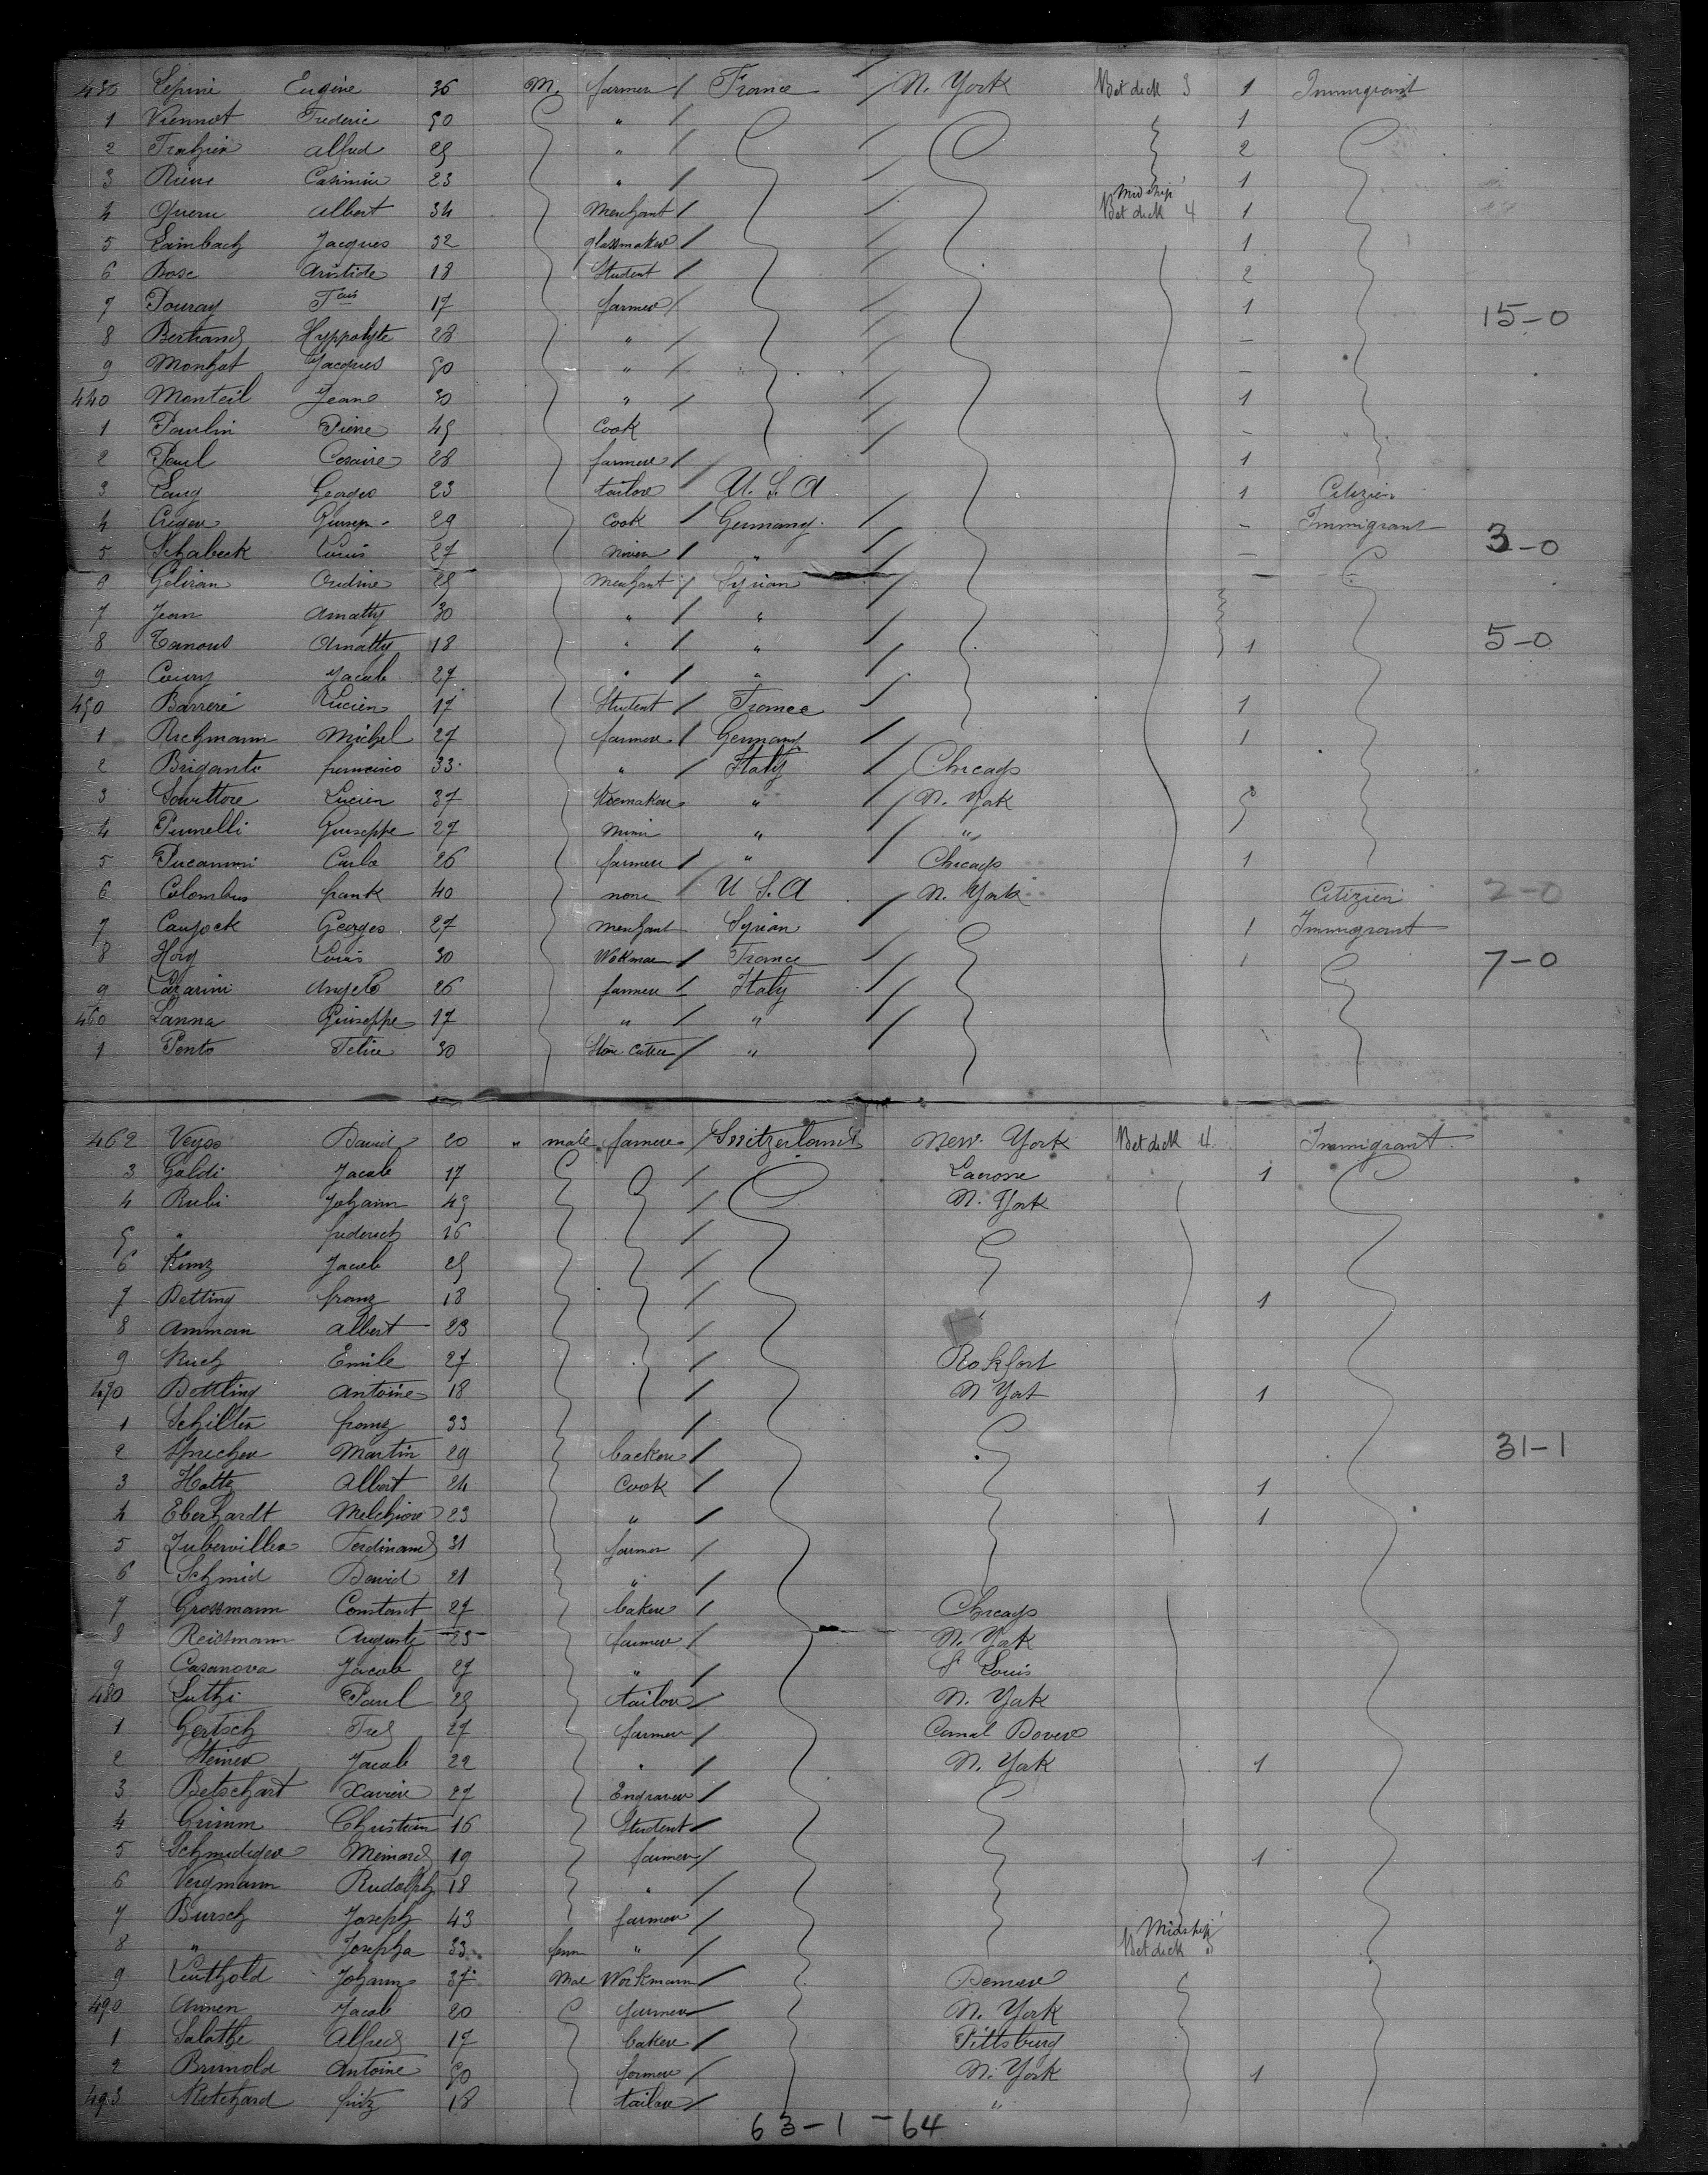 430 Lepine Eugène 36 M. farmer France N. York Bet deck 3 1 Immigrant
1 Viennot Frederic 50 " 1
2 Alfred 25 " 2
3 Casimir 23 " 1
4 Albert 34 Merchant Midship Bet deck 4 1
5 Laimbach Jacques 32 glassmaker 1
6 Bosc Aristide 18 Student 2
7 Pouray Fcois 17 farmer 1 15-0
8 Bertrand Hyppolyte 28 " -
9 Jacques 50 " -
440 Monteil Jean 30 " 1
1 Paulin Pierre 45 Cook -
2 Paul Cesaire 28 farmer 1
3 Georges 23 tailor U. S. A 1 Citizien
4 29 Cook Germany - Immigrant
5 Schabeck Louis 27 " - 3-0
6 25 Merchant Syrian -
7 Jean Amatty 30 " "
8 Tanous Amatty 18 " " 1 5-0
9 Coury Jacob 27 " "
450 Barrere Lucien 17 Student France 1
1 Richmann Michel 27 farmer Germany 1
2 Briganti 33 " Italy Chicago
3 Lucien 37 " N. York
4 Giuseppe 27 " "
5 Carlo 26 farmer " Chicago 1
6 Colombus frank 40 none U S. A N. York Citizien 2-0
7 Georges 27 merchant Syrian 1 Immigrant
8 Louis 30 Wokman France 1 7-0
9 Lazarini Angelo 26 farmer Italy
460 Lanna Giuseppe 17 " "
1 Ponto Felice 30 Stone Cutter "
462 David 20 " male farmer Switzerland New York Bet deck 4 Immigrant
3 Galdi Jacob 17 Lacrosse 1
4 Rubi Johann 45 N. York
5 " frederich 26
6 Kunz Jacob 25
7 Betting franz 18 1
8 Amman Albert 23
9 Ruch Emile 27 Rokfort
470 Antoine 18 N York 1
1 Schilter franz 33
2 Sprecher Martin 29 backer 31-1
3 Albert 24 Cook 1
4 Eberhardt Melchior 23 " 1
5 Ferdinand 31 farmer
6 Schmid David 21 "
7 Grossmann Constant 27 baker Chicago
8 Reissmann Auguste 25 farmer N. York
9 Casanova Jacob 27 " St Louis
480 Luthi Paul 25 tailor N. York
1 Gertsch Fred 27 farmer Canal Dover
2 Steiner Jacob 22 " N. York 1
3 Betschart Xavier 27 Engraver
4 Grimm Christian 16 Student
5 Schmidiger Meinard 19 farmer 1
6 Vergmann Rudolph 18 "
7 Bursch Joseph 43 farmer
8 " Josepha 33 fem " Midship Bet deck "
9 Leuthold Johann 37 Mal Workmann Denver
490 Annen Jacob 20 farmer N. York
1 Salathe Alfred 17 baker Pittsburg
2 Brunold Antoine 50 farmer N. York 1
493 fritz 18 tailor "
63-1-64